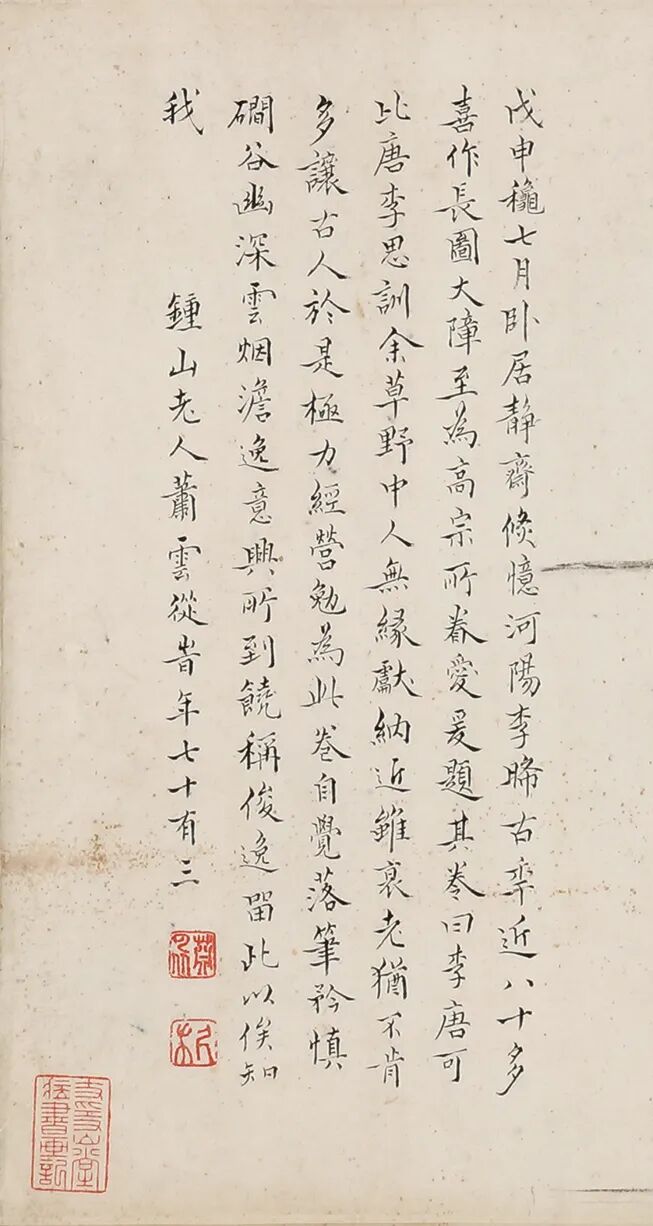 戊申龝七月卧居静齋倐憶河陽李晞古年近八十多
喜作長圖大障至為高宗所眷愛爰題其卷曰李唐可
比唐李思訓余草野中人無緣獻納近雖衰老猶不肯
多讓古人於是極力經營勉為此卷自覺落筆矜慎
磵谷幽深雲烟澹逸意興所到饒稱俊逸留此以俟知
我
鍾山老人蕭雲從旹年七十有三